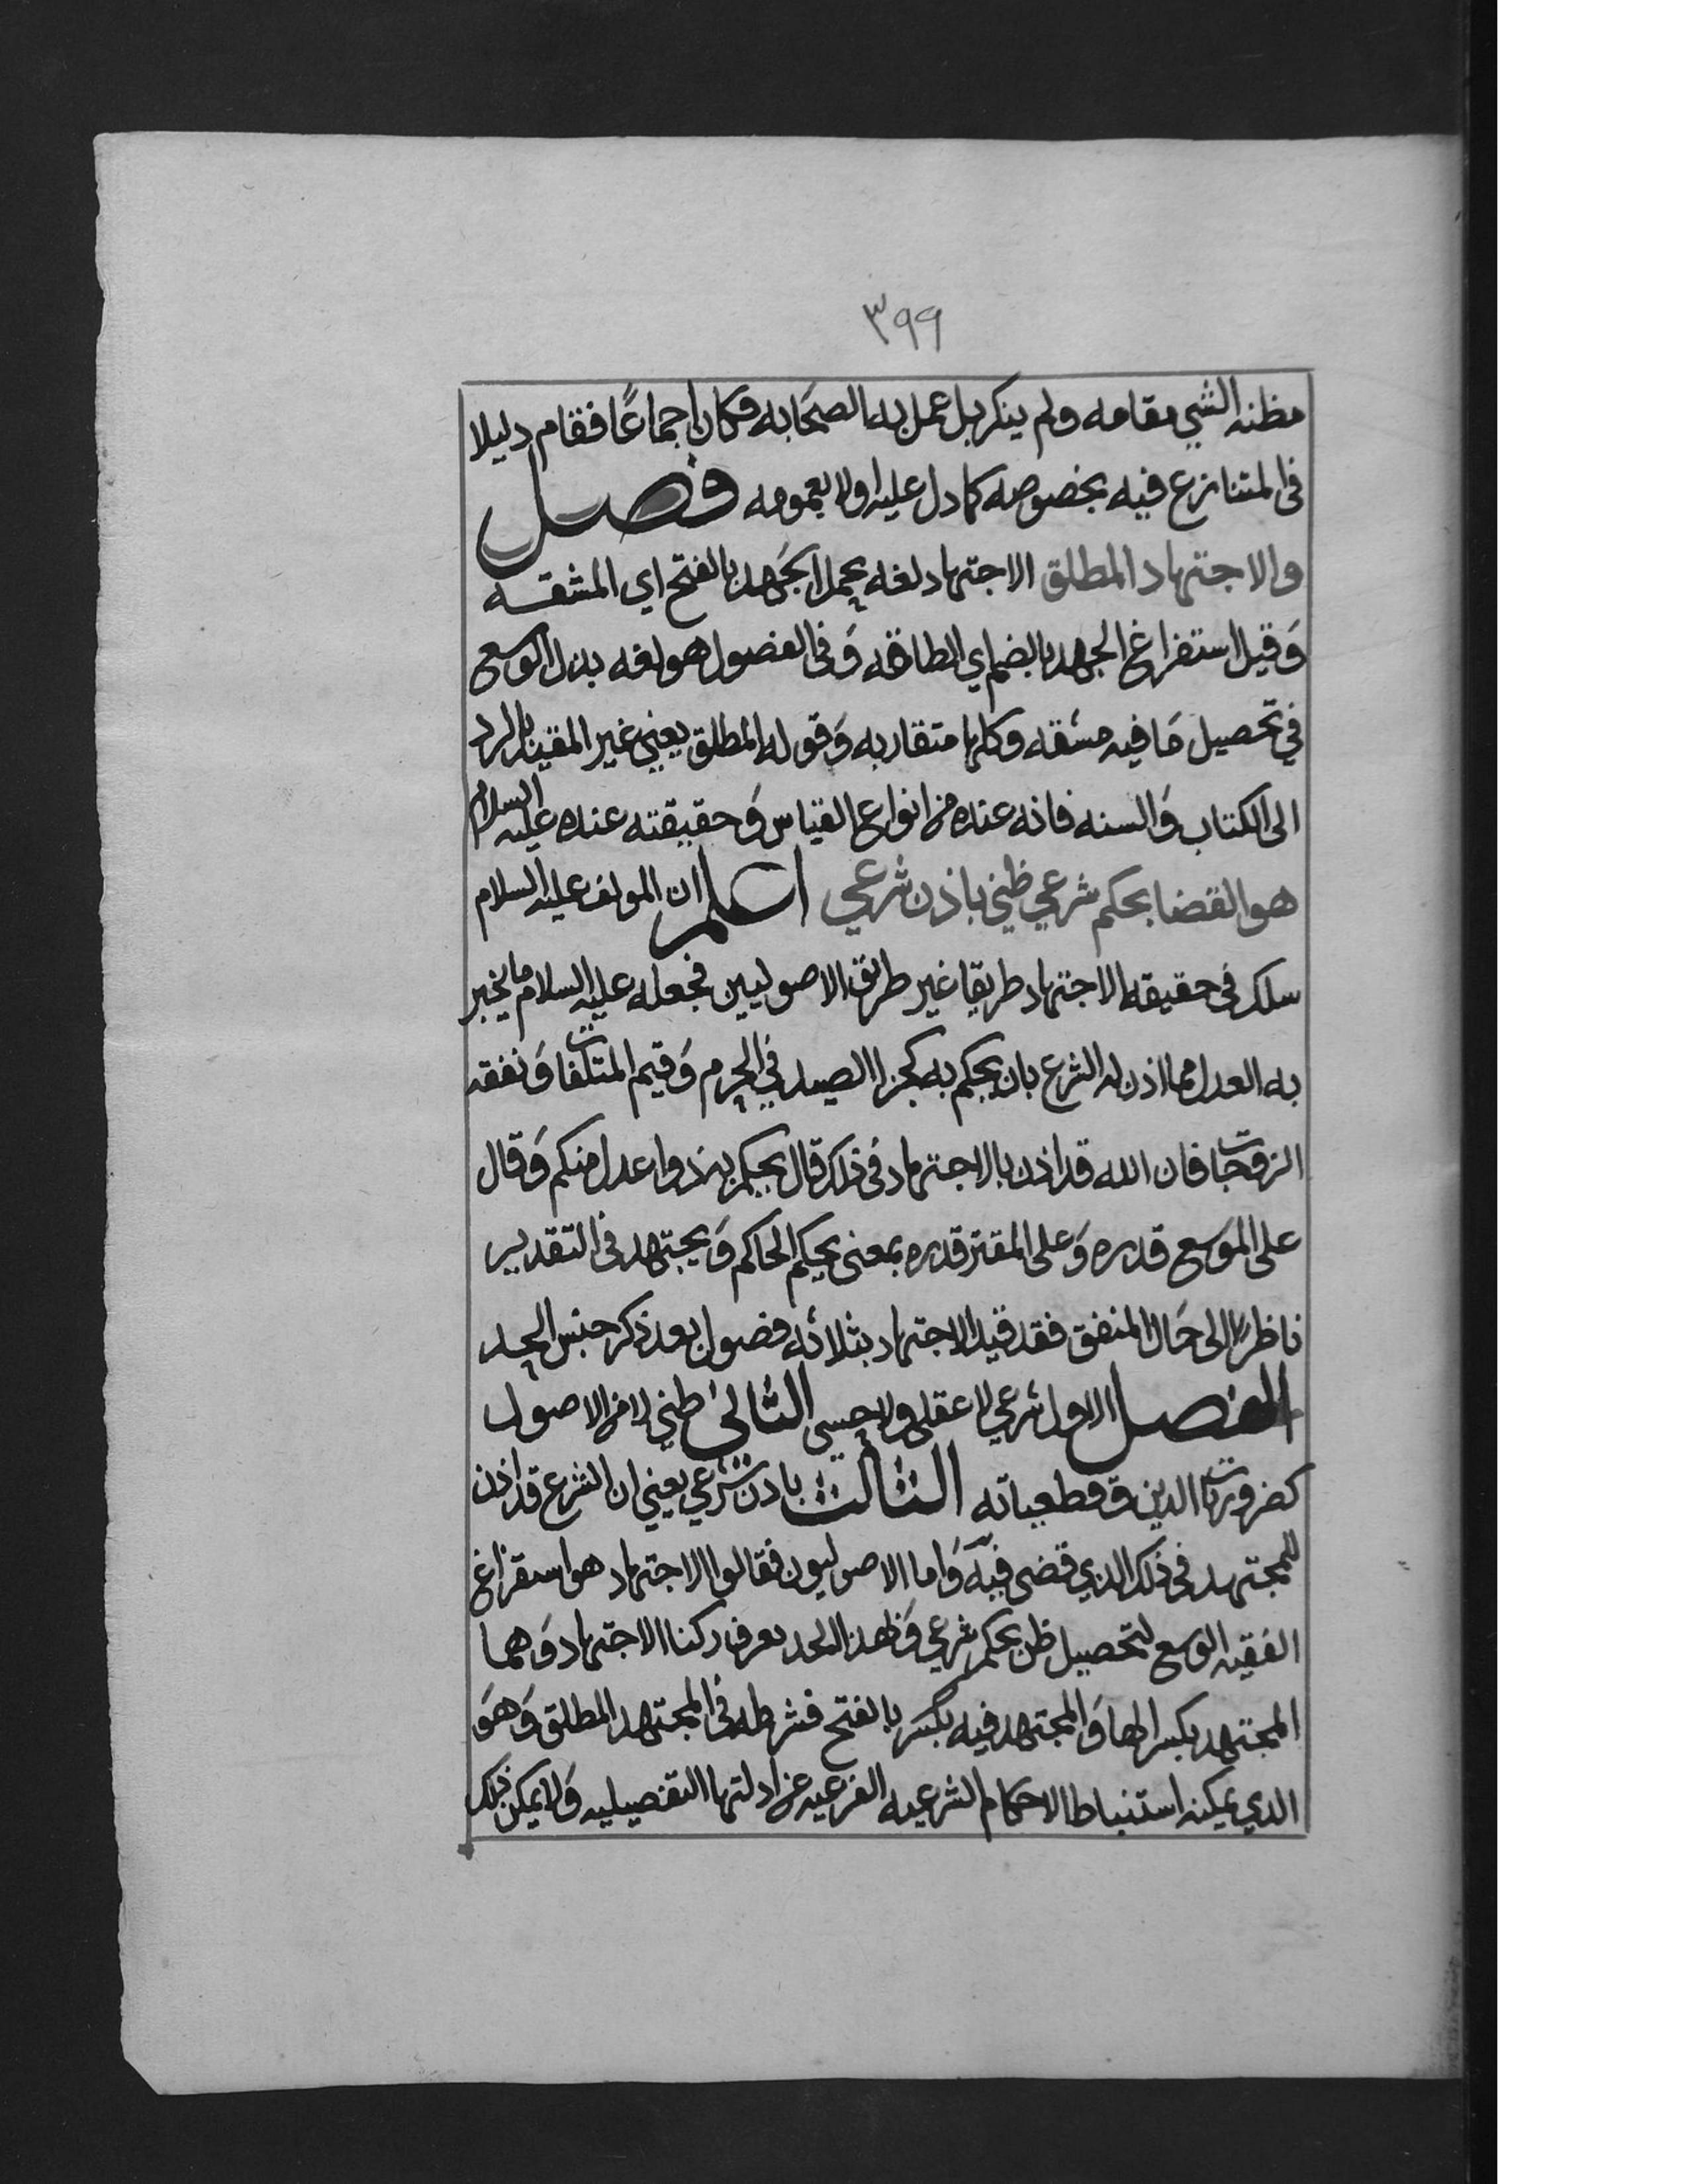 ٣٩٩
مظنه الشي مقامه ولم ينكر بل عمل به الصحابه فكان اجماعًا فقام دليلا
في المتنازع فيه بخصوصه كما دل عليه اولا بعمومه فصل
والاجتهاد المطلق الاجتهاد لغه تحمل الجَهد بالفتح اي المشقه
وَقيل استفراغ الجهد بالضم اي الطاقه وَفي الفصول هو لغه بذل الوسع
في تحصيل مَا فيه مشقه وكلها متقاربه وَقوله المطلق يعني غير المقيد بالرد
الى الكتاب وَالسنه فانه عنده من انواع القياس وَحقيقته عنده عليه السلام
هو القضا بحكم شرعي ظني باذن شرعي اعلم ان المولف عليه السلام
سلك في حقيقه الاجتهاد طريقا غير طريق الاصوليين فجعله عليه السلام ما يخبر
به العدل مما اذن له الشرع بان يحكم به كجزا الصيد في الحرم وَقيم المتلفات وَنفقه
الزوجات فان الله قد اذن بالاجتهاد في ذلك قال يحكم به ذوا عدل منكم وَقال
على الموَسع قدره وَعلى المقتر قدره بمعنى يحكم الحاكم وَيجتهد في التقدير
ناظرًا الى حَال المنفق فقد قيد الاجتهاد بثلاثه فصول بعد ذكر جنس الحد
الفصل الاول شرعي لا عقلي ولا حسي الثاني ظني لا من الاصول
كضروريات الدين وَقطعياته الثالث باذن شرعي يعني ان الشرع قد اذن
للمجتهد في ذلك الذي قضى فيه وَاما الاصوليون فقالوا الاجتهاد هو استفراغ
الفقيه الوسع لتحصيل ظن بحكم شرعي وَبهذا الحد يعرف ركنا الاجتهاد وَهما
المجتهد بكسر الها وَالمجتهد فيه بالفتح فشرطه في المجتهد المطلق وَهوَ
الذي يمكنه استنباط الاحكام الشرعيه الفرعيه عن ادلتها التفصيليه وَلا يمكن ذلك